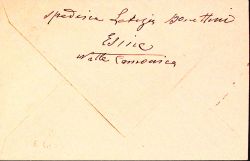 spedisce Letizia Bonettini
Esine
Valle Camonica